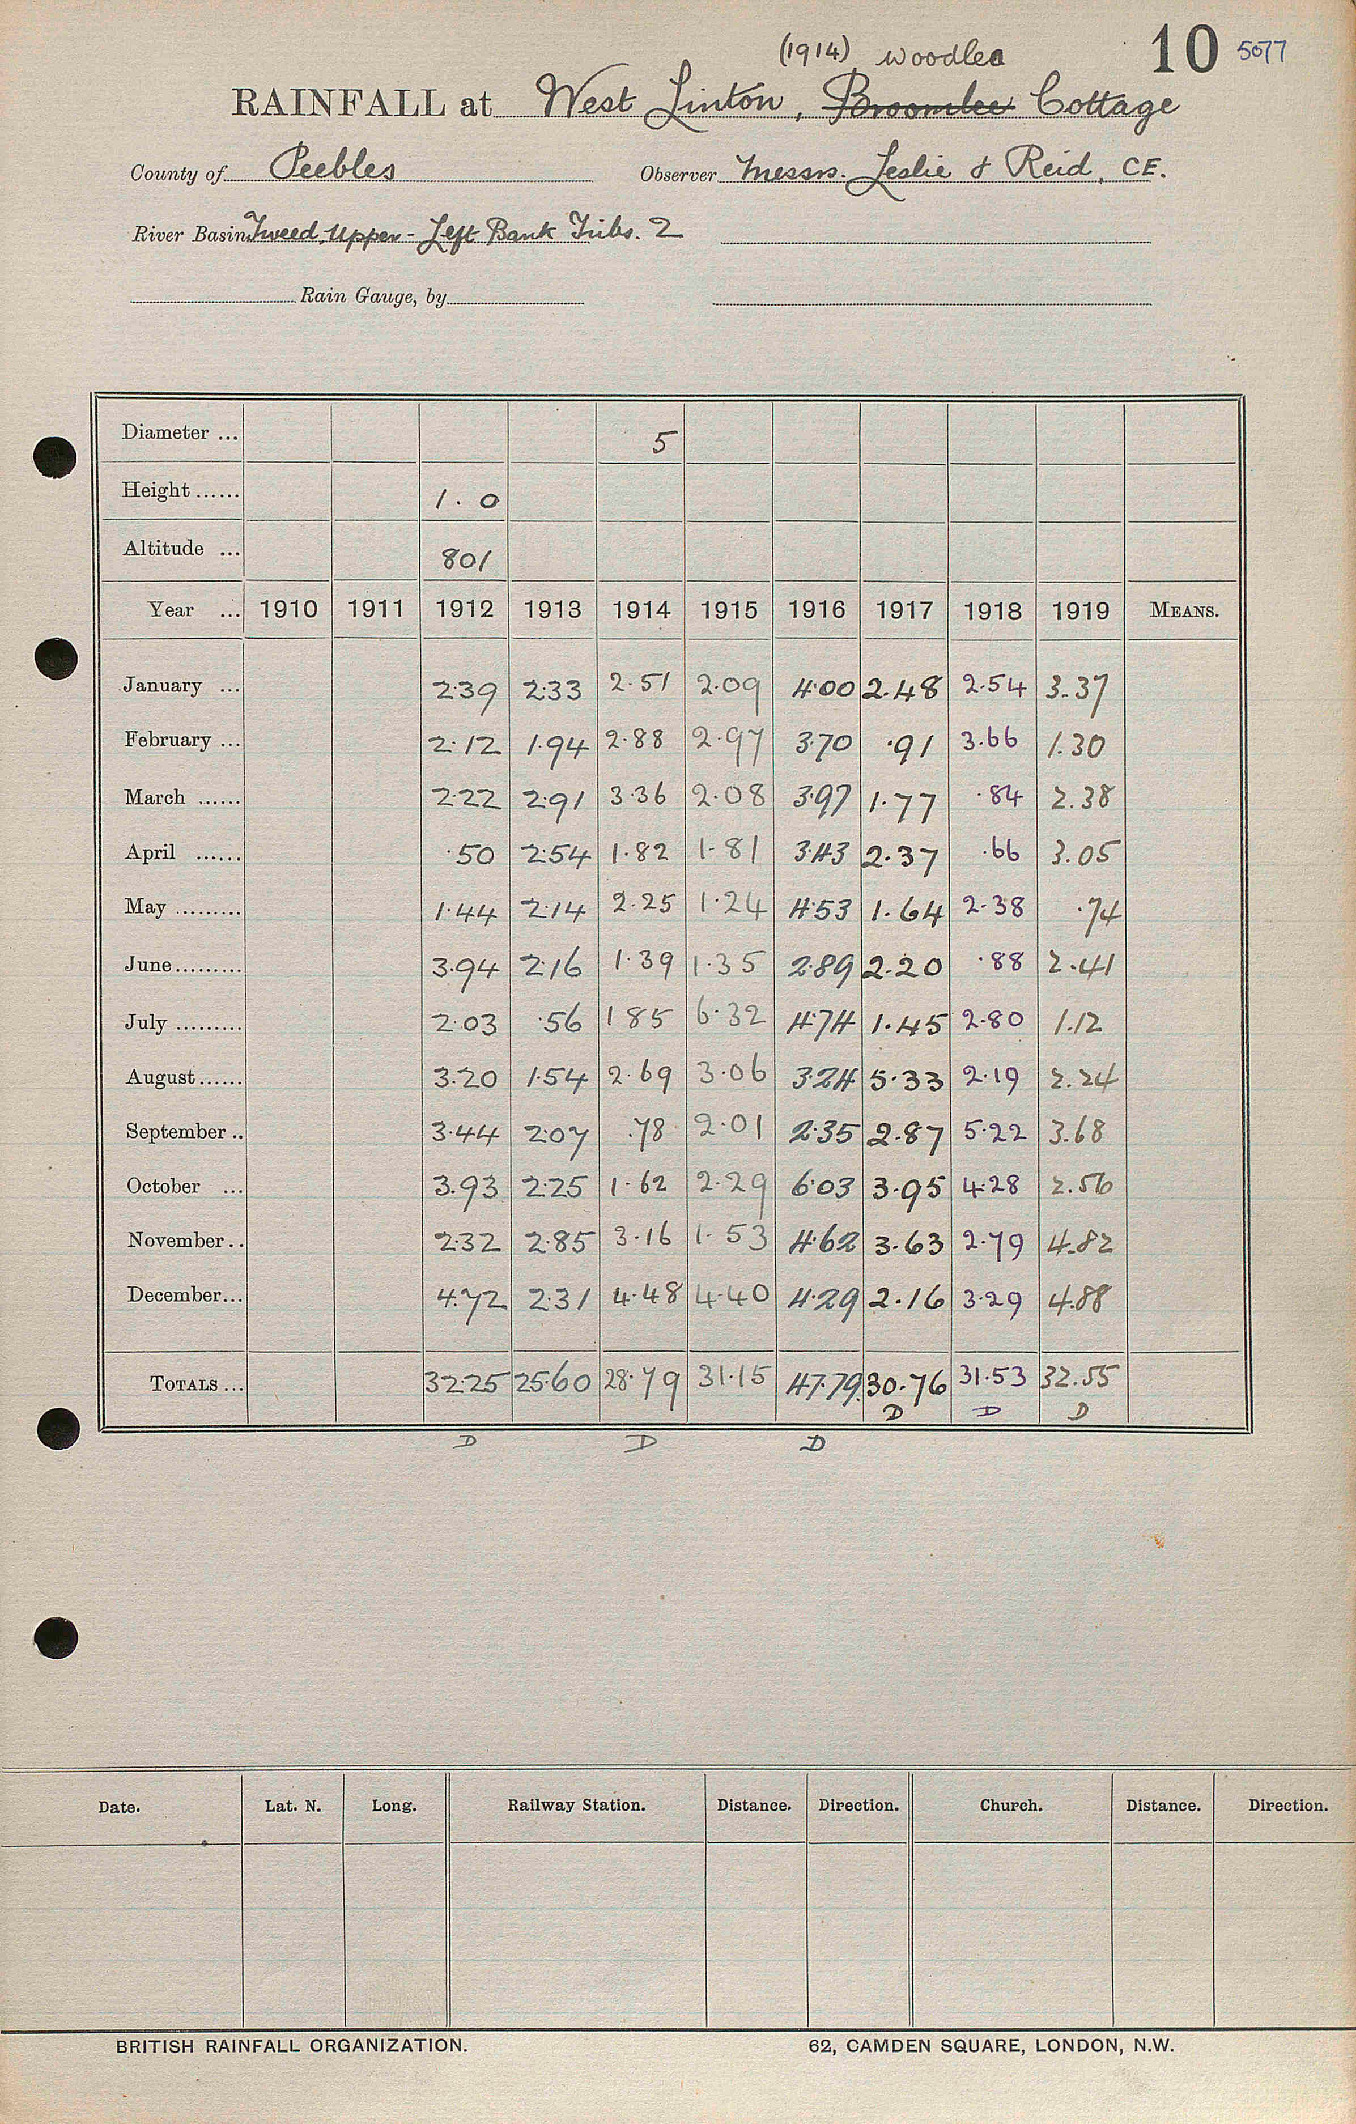 (1914) Woodlea 10 5077
RAINFALL at West Linton, Broomlee Cottage
County of Peebles Observer Messrs. Leslie & Reid, CE.
River Basin Tweed, Upper - Left Bank Tribs. 2
Rain Gauge, by
Diameter ... 5
Height ...... 1.0
Altitude ... 801
Year ... 1910 1911 1912 1913 1914 1915 1916 1917 1918 1919 MEANS.
January ... 2.39 2.33 2.51 2.09 4.00 2.48 2.54 3.37
February ... 2.12 1.94 2.88 2.97 3.70 .91 3.66 1.30
March ...... 2.22 2.91 3.36 2.08 3.97 1.77 .84 2.38
April ...... .50 2.54 1.82 1.81 3.43 2.37 .66 3.05
May ......... 1.44 2.14 2.25 1.24 4.53 1.64 2.38 .74
June ......... 3.94 2.16 1.39 1.35 2.89 2.20 .88 2.41
July ......... 2.03 .56 1 85 6.32 4.74 1.45 2.80 1.12
August ...... 3.20 1.54 2.69 3.06 3.24 5.33 2.19 2.24
September .. 3.44 2.07 .78 2.01 2.35 2.87 5.22 3.68
October ... 3.93 2.25 1.62 2.29 6.03 3.95 4.28 2.56
November .. 2.32 2.85 3.16 1.53 4.62 3.63 2.79 4.82
December ... 4.72 2.31 4.48 4.40 4.29 2.16 3.29 4.88
TOTALS ... 32.25 25.60 28.79 31.15 47.79 30.76 31.53 32.55
D D D
D D D
Date. Lat. N. Long. Railway Station. Distance. Direction. Church. Distance. Direction.
BRITISH RAINFALL ORGANIZATION. 62, CAMDEN SQUARE, LONDON, N.W.